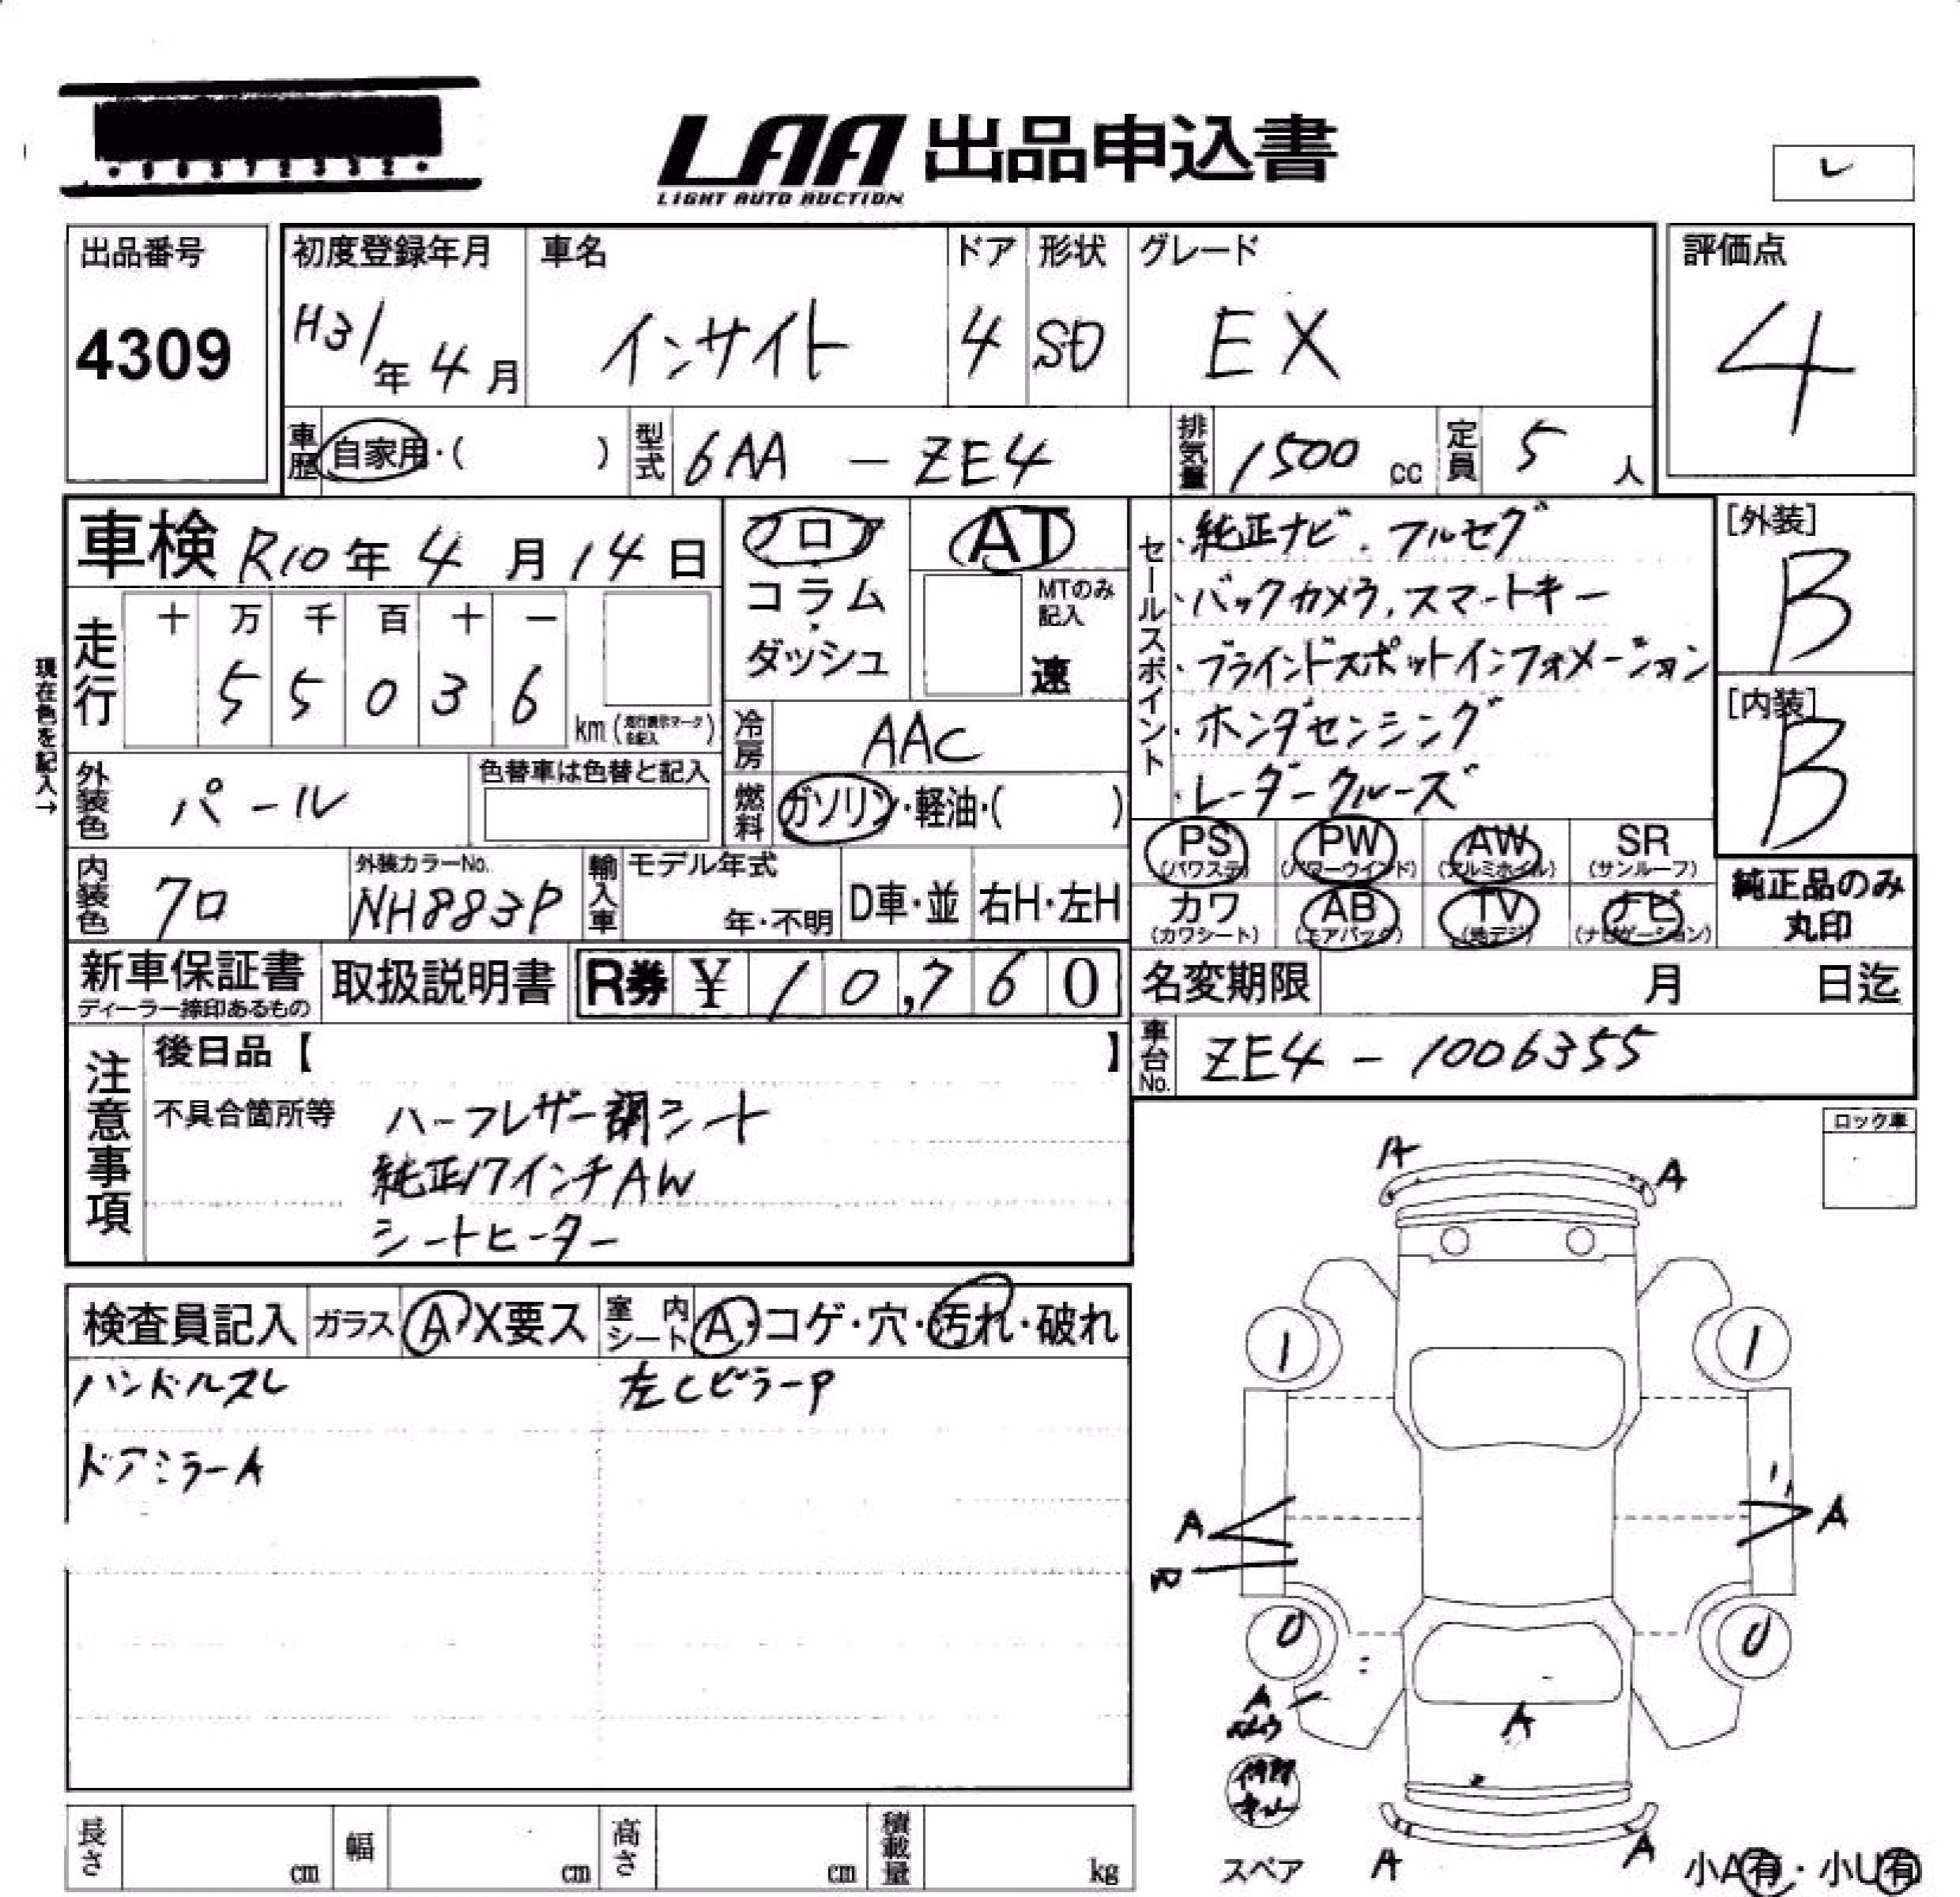 LAA 出品申込書
LIGHT AUTO AUCTION
レ
出品番号
4309
初度登録年月
H31年 4月
車名
インサイト
ドア
4
形状
SD
グレード
EX
評価点
4
車歴 自家用・( )
型式 6AA - ZE4
排気量 1500 cc
定員 5 人
車検 R10年 4月 14日
フロア
コラム
ダッシュ
AT
MTのみ記入
速
セールスポイント
・純正ナビ.フルセグ
・バックカメラ,スマートキー
・ブラインドスポットインフォメーション
・ホンダセンシング
・レーダークルーズ
[外装]
B
[内装]
B
現在色を記入→
走行
十 万 千 百 十 一
5 5 0 3 6
km(走行表示マークを記入)
冷房 AAC
燃料 ガソリン・軽油・( )
外装色 パール
色替車は色替と記入
PS (パワステ)
PW (パワーウインド)
AW (アルミホイル)
SR (サンルーフ)
カワ (カワシート)
AB (エアバック)
TV (地デジ)
ナビ (ナビゲーション)
純正品のみ
丸印
内装色 クロ
外装カラーNo.
NH883P
輸入車
モデル年式
年・不明
D車・並
右H・左H
新車保証書
ディーラー捺印あるもの
取扱説明書
R券 ¥ 10,760
名変期限 月 日迄
車台No. ZE4 - 1006355
注意事項
後日品【 】
不具合箇所等 ハーフレザー調シート
純正17インチAW
シートヒーター
ロック車
検査員記入
ガラス A・X要ス
室内シート A・コゲ・穴・汚れ・破れ
ハンドルスレ
左CピラーP
ドアミラーA
A A
1 1
A A
0 0
A
A
A A
スペア
小A有・小U有
長さ cm
幅 cm
高さ cm
積載量 kg